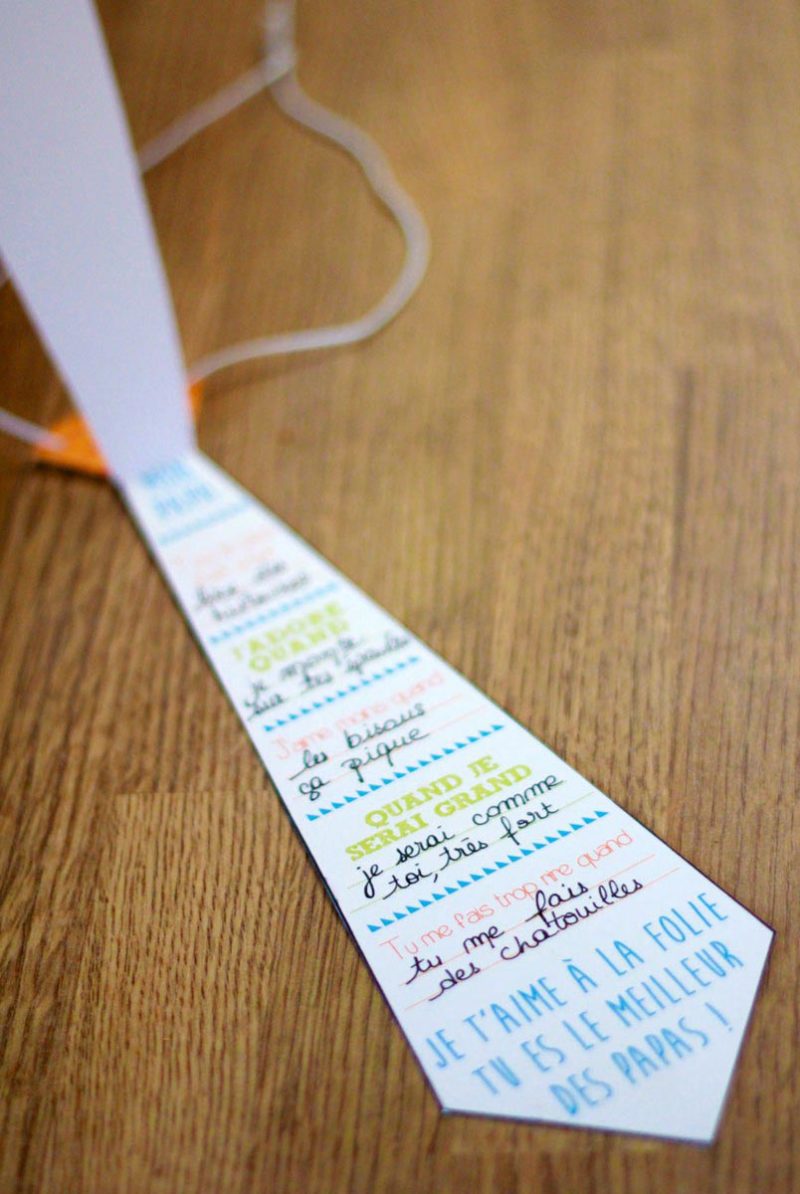 J'ADORE
QUAND
je
sur tes épaules
J'aime moins quand
les bisous
ça pique
QUAND JE
SERAI GRAND
je serai comme
toi, très fort
Tu me fais trop rire quand
tu me fais
des chatouilles
JE T'AIME À LA FOLIE
TU ES LE MEILLEUR
DES PAPAS !